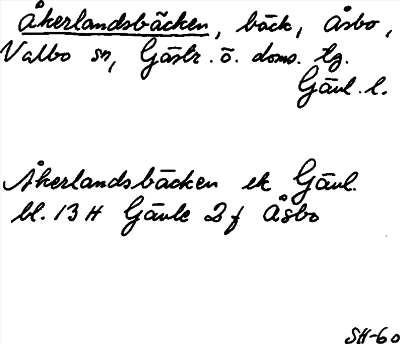 Åkerlandsbäcken, bäck, Åsbo,
Valbo sn, Gästr. ö. doms. tg.
Gävl. l.
Åkerlandsbäcken ek Gävl.
bl. 13 H Gävle 2 f Åsbo
SH-60